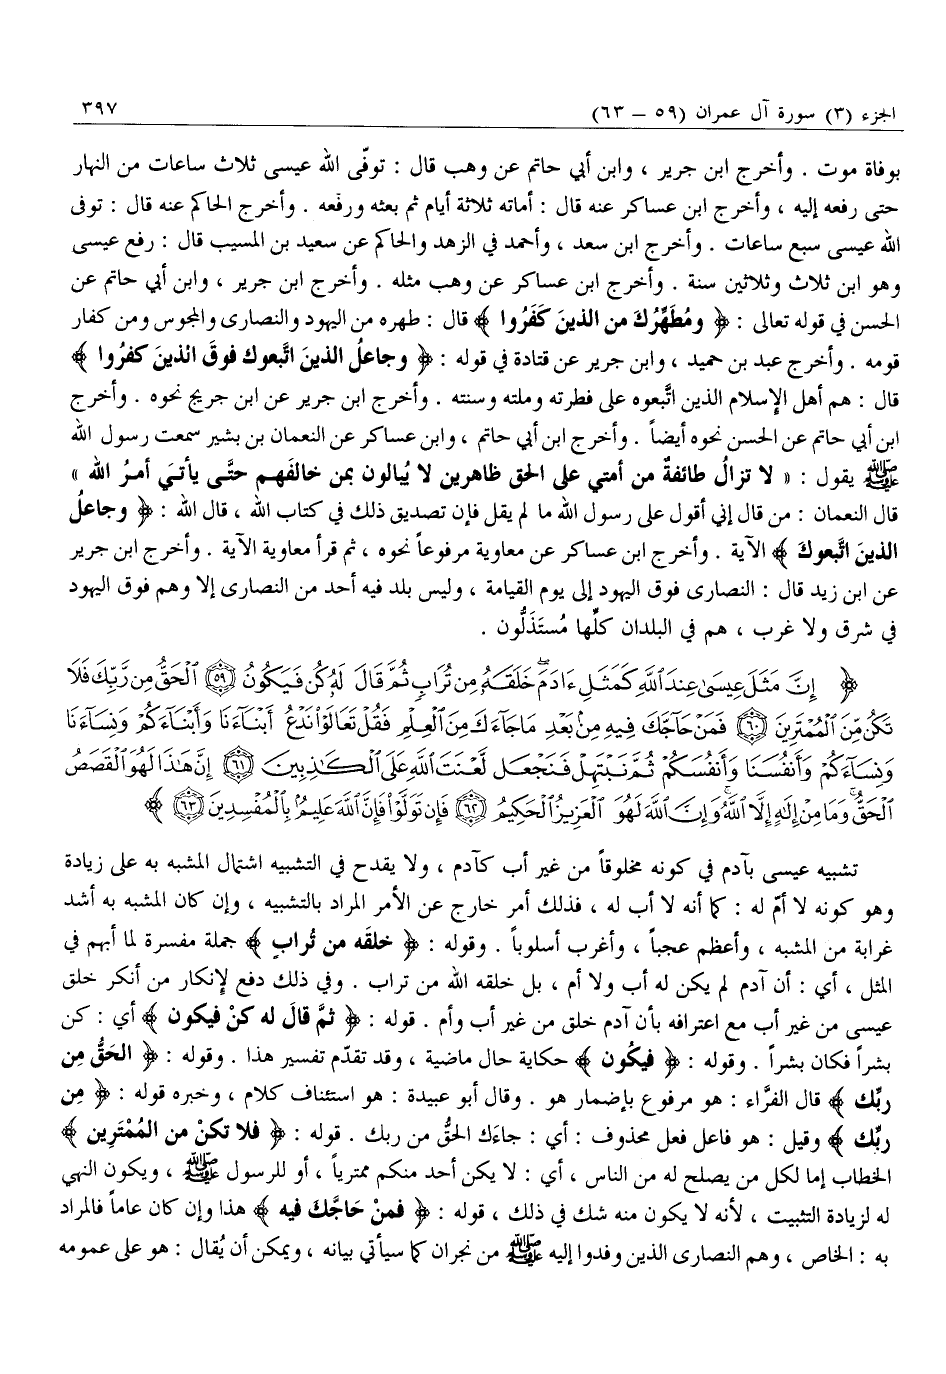 الجزء (٣) سورة آل عمران (٥٩ – ٦٣) ٣٩٧
بوفاة موت . وأخرج ابن جرير ، وابن أبي حاتم عن وهب قال : توفّى الله عيسى ثلاث ساعات من النهار
حتى رفعه إليه ، وأخرج ابن عساكر عنه قال : أماته ثلاثة أيام ثم بعثه ورفعه . وأخرج الحاكم عنه قال : توفى
الله عيسى سبع ساعات . وأخرج ابن سعد ، وأحمد في الزهد والحاكم عن سعيد بن المسيب قال : رفع عيسى
وهو ابن ثلاث وثلاثين سنة . وأخرج ابن عساكر عن وهب مثله . وأخرج ابن جرير ، وابن أبي حاتم عن
الحسن في قوله تعالى : ﴿ ومُطَهِّرُكَ من الذينَ كَفَرُوا ﴾ قال : طهره من اليهود والنصارى والمجوس ومن كفار
قومه . وأخرج عبد بن حميد ، وابن جرير عن قتادة في قوله : ﴿ وجاعلُ الذينَ اتَّبعوك فوقَ الذينَ كفرُوا ﴾
قال : هم أهل الإسلام الذين اتَّبعوه على فطرته وملته وسنته . وأخرج ابن جرير عن ابن جريج نحوه . وأخرج
ابن أبي حاتم عن الحسن نحوه أيضاً . وأخرج ابن أبي حاتم ، وابن عساكر عن النعمان بن بشير سمعت رسول الله
ﷺ يقول : « لا تزالُ طائفةٌ من أمتي على الحق ظاهرين لا يُبالون بمن خالفَهم حتَّى يأتيَ أمرُ الله »
قال النعمان : من قال إني أقول على رسول الله ما لم يقل فإن تصديق ذلك في كتاب الله ، قال الله : ﴿ وجاعلُ
الذينَ اتَّبعوكَ ﴾ الآية . وأخرج ابن عساكر عن معاوية مرفوعاً نحوه ، ثم قرأ معاوية الآية . وأخرج ابن جرير
عن ابن زيد قال : النصارى فوق اليهود إلى يوم القيامة ، وليس بلد فيه أحد من النصارى إلا وهم فوق اليهود
في شرق ولا غرب ، هم في البلدان كلِّها مُستَذَلُّون .
﴿ إِنَّ مَثَلَ عِيسَىٰ عِندَ ٱللَّهِ كَمَثَلِ ءَادَمَ خَلَقَهُۥ مِن تُرَابٍ ثُمَّ قَالَ لَهُۥ كُن فَيَكُونُ ۝٥٩ ٱلْحَقُّ مِن رَّبِّكَ فَلَا
تَكُن مِّنَ ٱلْمُمْتَرِينَ ۝٦٠ فَمَنْ حَآجَّكَ فِيهِ مِنۢ بَعْدِ مَا جَآءَكَ مِنَ ٱلْعِلْمِ فَقُلْ تَعَالَوْا۟ نَدْعُ أَبْنَآءَنَا وَأَبْنَآءَكُمْ وَنِسَآءَنَا
وَنِسَآءَكُمْ وَأَنفُسَنَا وَأَنفُسَكُمْ ثُمَّ نَبْتَهِلْ فَنَجْعَل لَّعْنَتَ ٱللَّهِ عَلَى ٱلْكَٰذِبِينَ ۝٦١ إِنَّ هَٰذَا لَهُوَ ٱلْقَصَصُ
ٱلْحَقُّ ۚ وَمَا مِنْ إِلَٰهٍ إِلَّا ٱللَّهُ ۚ وَإِنَّ ٱللَّهَ لَهُوَ ٱلْعَزِيزُ ٱلْحَكِيمُ ۝٦٢ فَإِن تَوَلَّوْا۟ فَإِنَّ ٱللَّهَ عَلِيمٌۢ بِٱلْمُفْسِدِينَ ۝٦٣ ﴾
تشبيه عيسى بآدم في كونه مخلوقاً من غير أب كآدم ، ولا يقدح في التشبيه اشتمال المشبه به على زيادة
وهو كونه لا أمّ له : كما أنه لا أب له ، فذلك أمر خارج عن الأمر المراد بالتشبيه ، وإن كان المشبه به أشد
غرابة من المشبه ، وأعظم عجباً ، وأغرب أسلوباً . وقوله : ﴿ خلقَه من تُرابٍ ﴾ جملة مفسرة لما أبهم في
المثل ، أي : أن آدم لم يكن له أب ولا أم ، بل خلقه الله من تراب . وفي ذلك دفع لإنكار من أنكر خلق
عيسى من غير أب مع اعترافه بأن آدم خلق من غير أب وأم . قوله : ﴿ ثمَّ قالَ له كنْ فيكون ﴾ أي : كن
بشراً فكان بشراً . وقوله : ﴿ فيكُون ﴾ حكاية حال ماضية ، وقد تقدّم تفسير هذا . وقوله : ﴿ الحَقُّ مِن
ربِّك ﴾ قال الفرَّاء : هو مرفوع بإضمار هو . وقال أبو عبيدة : هو استئناف كلام ، وخبره قوله : ﴿ مِن
ربِّك ﴾ وقيل : هو فاعل فعل محذوف : أي : جاءَك الحقُّ من ربك . قوله : ﴿ فلا تكنْ من المُمْتَرِين ﴾
الخطاب إما لكل من يصلح له من الناس ، أي : لا يكن أحد منكم ممترياً ، أو للرسول ﷺ ، ويكون النهي
له لزيادة التثبيت ، لأنه لا يكون منه شك في ذلك ، قوله : ﴿ فمنْ حَاجَّكَ فيه ﴾ هذا وإن كان عاماً فالمراد
به : الخاص ، وهم النصارى الذين وفدوا إليه ﷺ من نجران كما سيأتي بيانه ، ويمكن أن يُقال : هو على عمومه